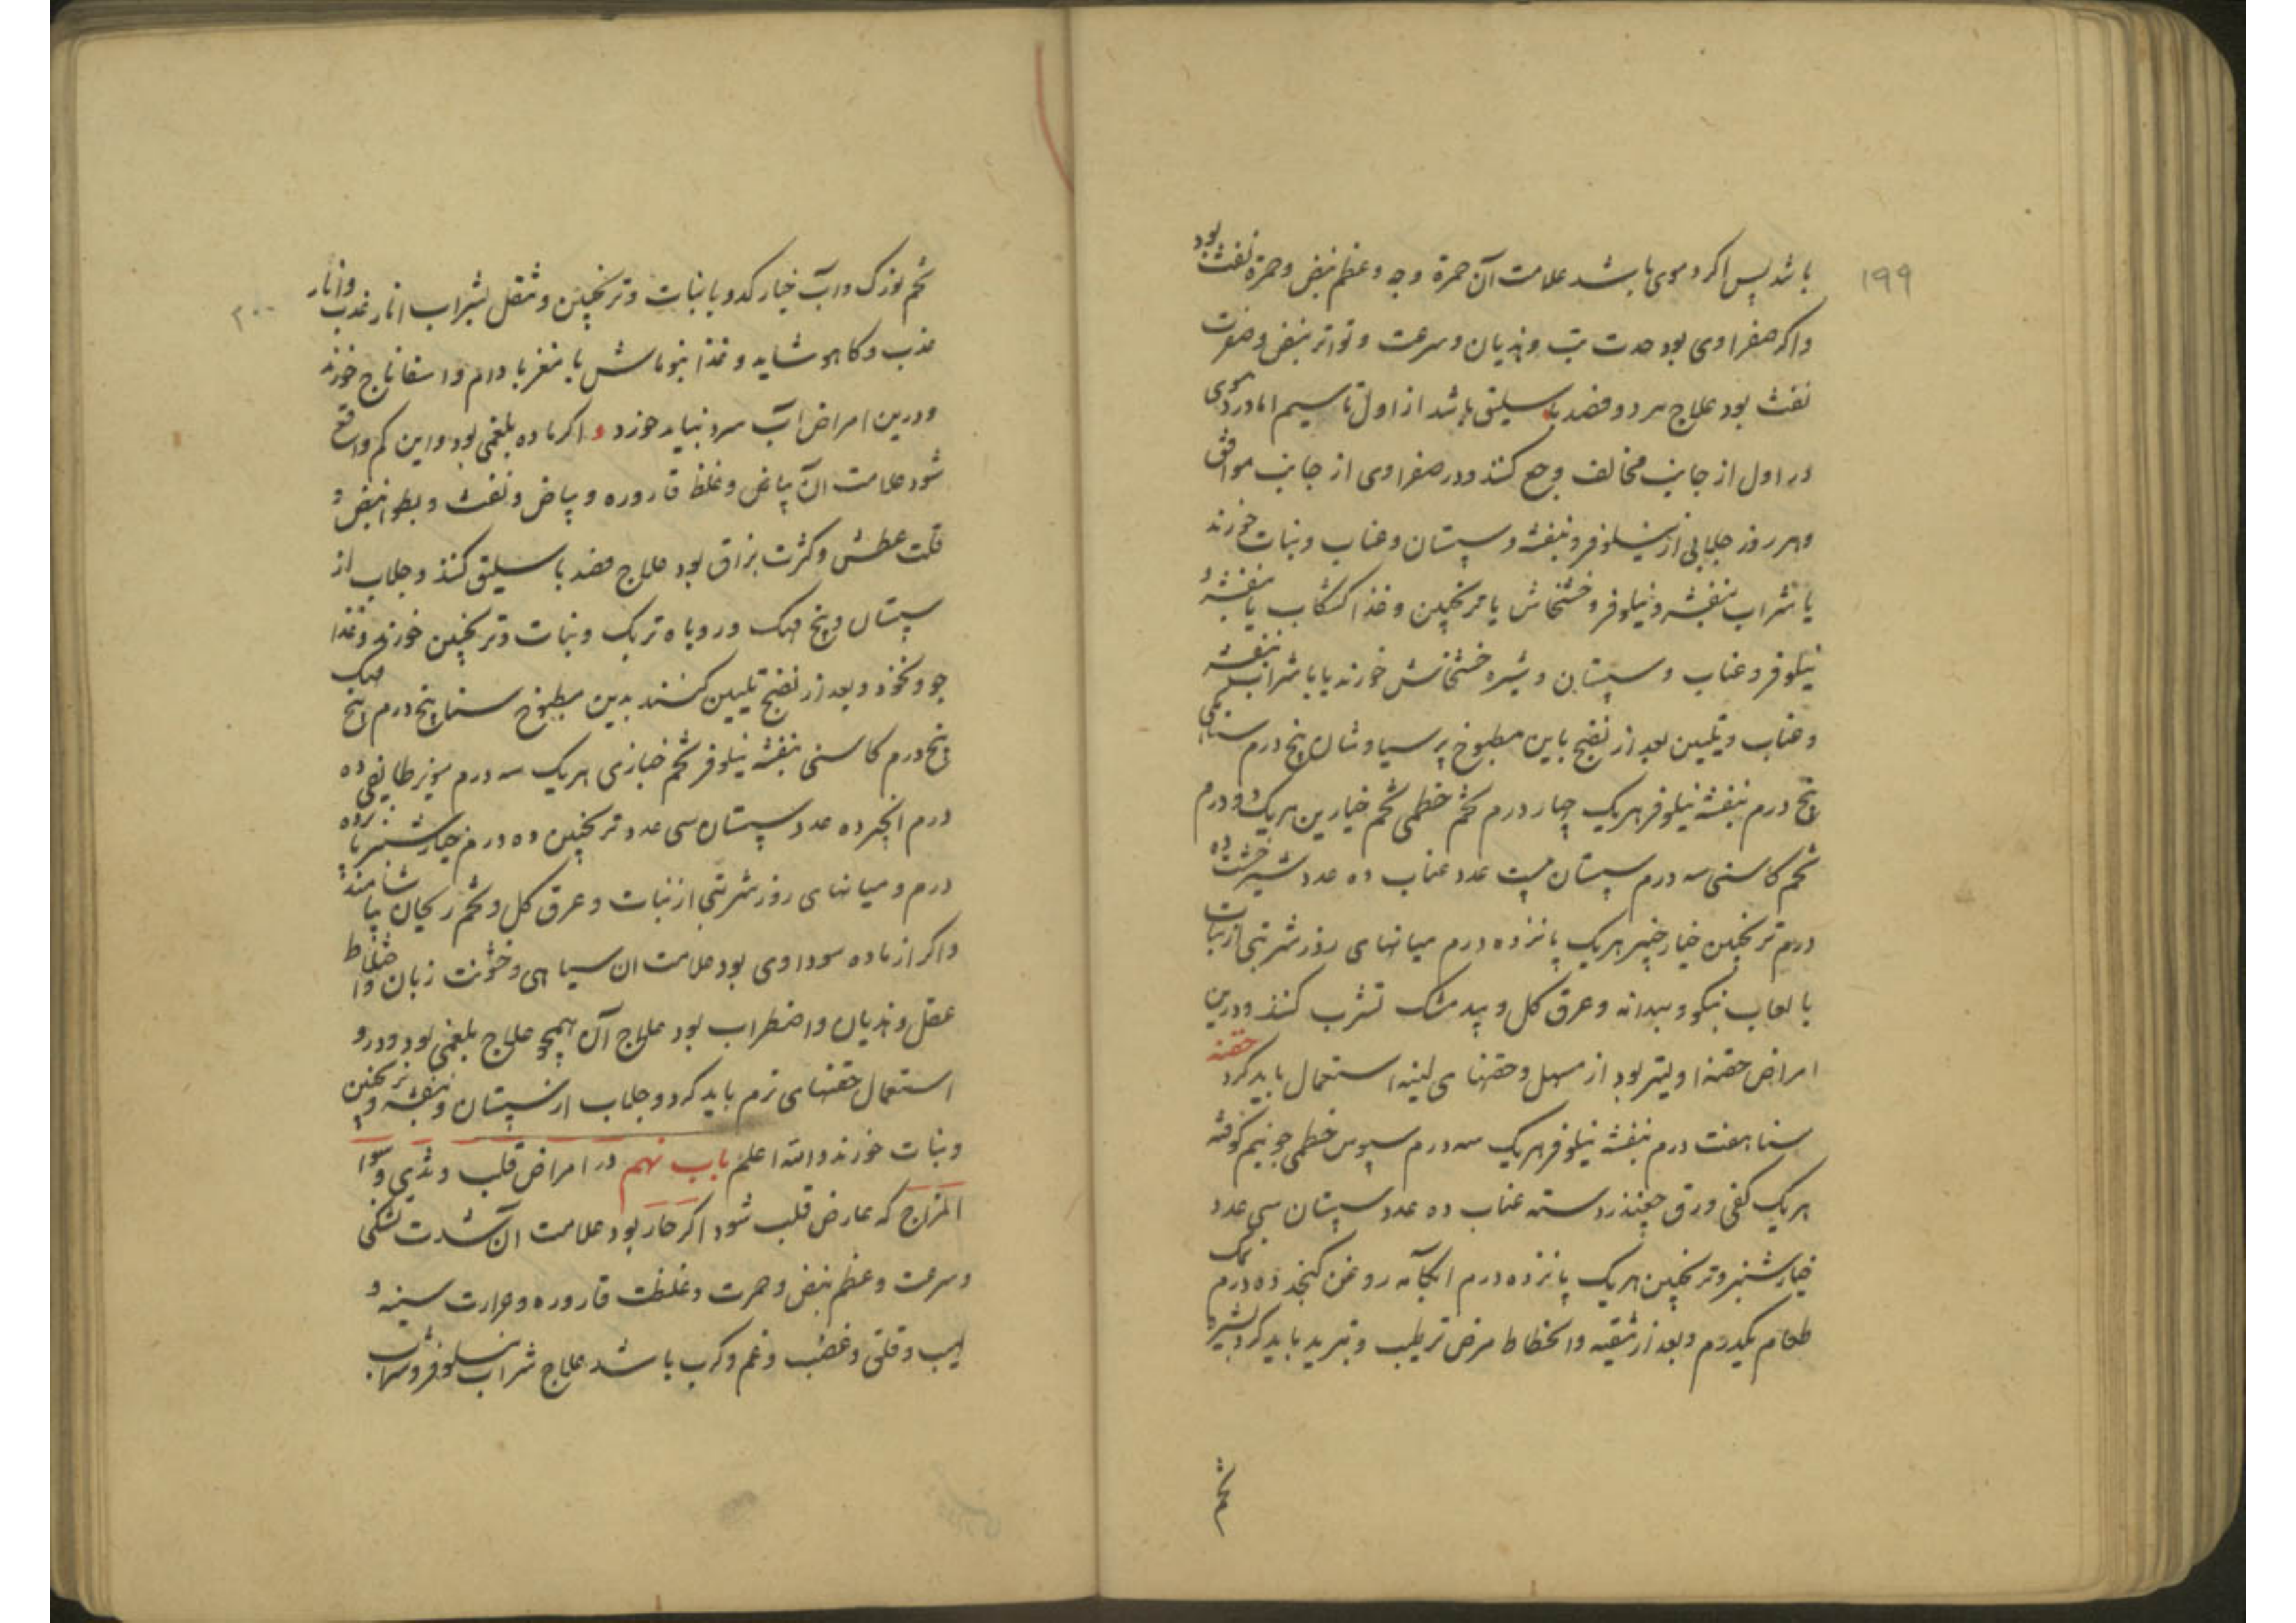 ۱۹۹
باشد پس اکر دموی باشد علامت آن حمرة وجه و عظم نبض و حمرة نفث بود
واکر صفراوی بود حدت تب و هذیان و سرعت و تواتر نبض و صفرت
نفث بود علاج هر دو فصد باسلیق باشد از اول تا سیم اما در دموی
در اول از جانب مخالف وجع کنند و در صفراوی از جانب موافق
وهر روز جلابی از نیلوفر و بنفشه و سپستان و عناب و نبات خورند
یا شراب بنفشه و نیلوفر و خشخاش با ترنجبین و غذا کشکاب با بنفشه و
نیلوفر و عناب و سپستان و شیره خشخاش خورند یا با شراب بنفشه
و عناب و تلیین بعد از نضج باین مطبوخ پرسیاوشان پنج درم سناء مکی
پنج درم بنفشه نیلوفر هریک چهار درم تخم خطمی تخم خیارین هریک دو درم
تخم کاسنی سه درم سپستان بیست عدد عناب ده عدد شیرخشت ده
درم ترنجبین خیارچنبر هریک پانزده درم میانهای روز شربتی از نبات
با لعاب نیکو و بیدانه و عرق کل و بیدمشک تشرب کنند و درین
امراض حقنه اولیتر بود از مسهل و حقنهای لینه استعمال باید کرد حقنه
سنا هفت درم بنفشه نیلوفر هریک سه درم سپوس خطمی جو نیم کوفته
هریک کفی ورق چغندر دسته عناب ده عدد سپستان سی عدد
خیارشنبر و ترنجبین هریک پانزده درم ابکامه روغن کنجد ده درم نمک
طعام یکدرم و بعد از تنقیه و انحطاط مرض ترطیب و تبرید باید کرد بشیره
تخم
۲۰۰
تخم بوزرک و آب خیار کدو با نبات و ترنجبین و تنقل بشراب انار عذب و انار
عذب و کاهو شاید و غذا بنوماش با مغز بادام و اسفاناج خورند
ودرین امراض آب سرد نباید خورد و اکر ماده بلغمی بود و این کم واقع
شود علامت آن بیاض و غلظ قاروره و بیاض و نفث و بطوء نبض و
قلت عطش و کثرت بزاق بود علاج فصد باسلیق کنند و جلاب از
سپستان و بیخ مهک و روباه تربک و نبات و ترنجبین خورند و غذا
جو و نخود و بعد از نضج تلیین کنند بدین مطبوخ سنا پنج درم بیخ مهک
پنج درم کاسنی بنفشه نیلوفر تخم خبازی هریک سه درم مویز طایفی ده
درم انجیر ده عدد سپستان سی عدد ترنجبین ده درم خیارشنبر پانزده
درم و میانهای روز شربتی از نبات و عرق کل و تخم ریحان بیاشامند
واکر از ماده سوداوی بود علامت ان سیاهی و خشونت زبان و اختلاط
عقل و هذیان و اضطراب بود علاج آن همچو علاج بلغمی بود و درو
استعمال حقنهای نرم باید کرد و جلاب از سپستان و بنفشه و ترنجبین
و نبات خورند والله اعلم باب نهم در امراض قلب و ثدی و سوا
المزاج که عارض قلب شود اکر حار بود علامت آن شدت تشنکی
و سرعت و عظم نبض و حمرت و غلظت قاروره و حرارت سینه و
لهیب و قلق و غضب و غم و کرب باشد علاج شراب نیلوفر و شراب